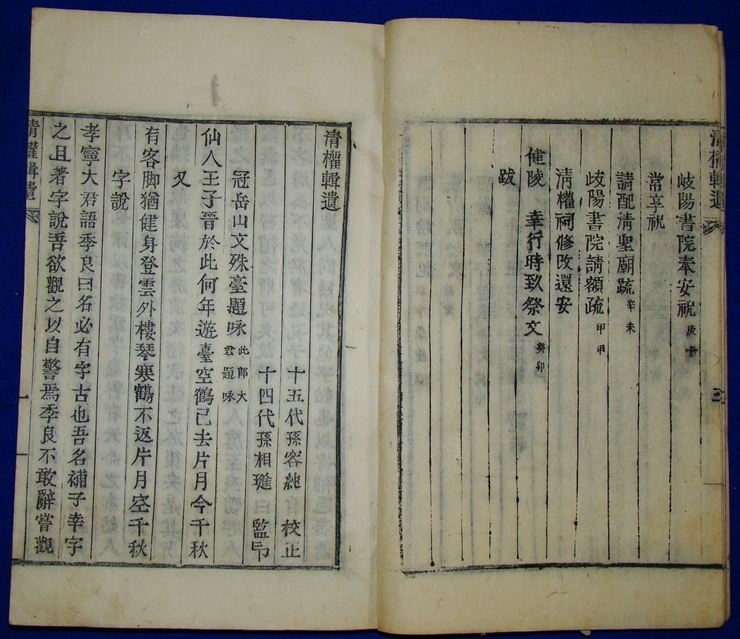 清權輯遺
岐陽書院奉安祝
常享祝
請配清聖廟疏 辛未
歧陽書院請額疏 甲申
清權祠修改還安
健陵 幸行時致祭文 癸卯
跋
清權輯遺
十五代孫容純 校正
十四代孫相 監印
冠岳山文殊臺題咏 此郎大君題咏
仙人王子晉於此何年遊臺空鶴已去片月今千秋
又
有客脚猶健身登雲外樓琴寒鶴不返片月空千秋
字說
孝寧大君語季良曰名必有字古也吾名補子幸字
之且著字說吾欲觀之以自警焉季良不敢辭嘗觀
清權輯遺 一